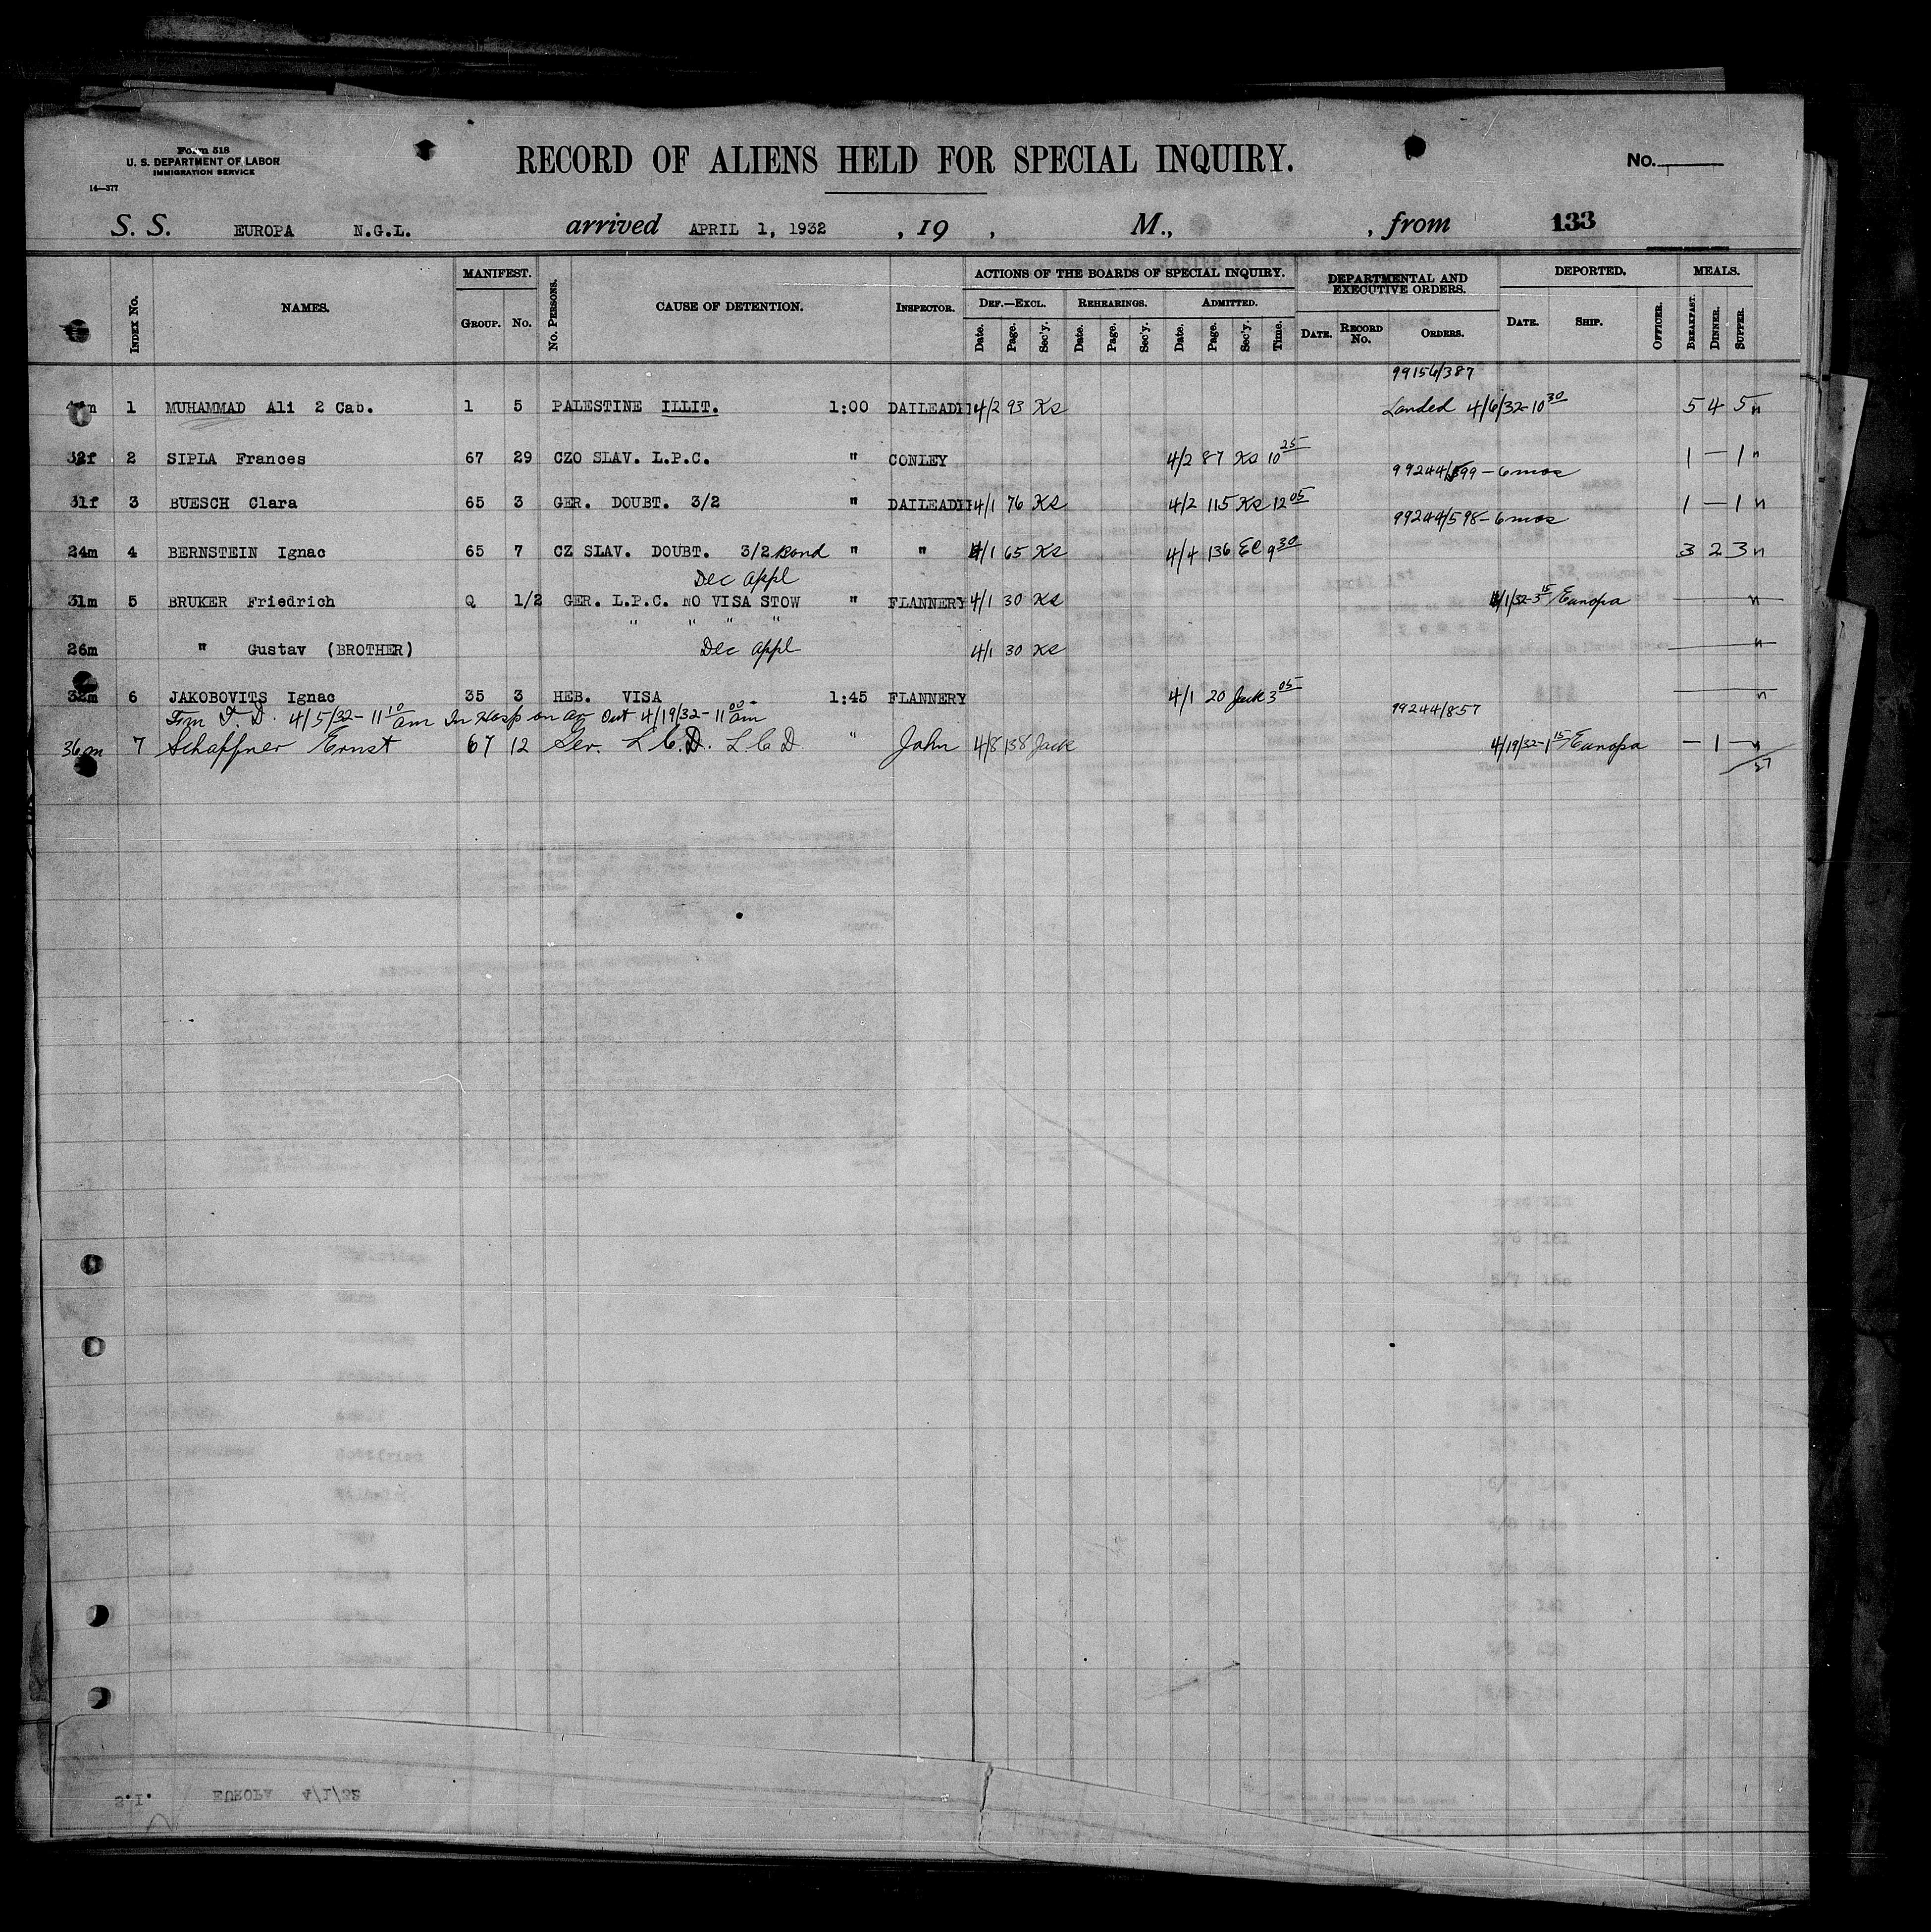 Form 518
U. S. DEPARTMENT OF LABOR
IMMIGRATION SERVICE
14—377
RECORD OF ALIENS HELD FOR SPECIAL INQUIRY.
No.
S. S. EUROPA N.G.L. arrived APRIL 1, 1932 , 19 , M., , from 133
INDEX No. NAMES. MANIFEST. GROUP. No. No. PERSONS. CAUSE OF DETENTION. INSPECTOR. ACTIONS OF THE BOARDS OF SPECIAL INQUIRY. DEF.—EXCL. Date. Page. Sec'y. REHEARINGS. Date. Page. Sec'y. ADMITTED. Date. Page. Sec'y. Time. DEPARTMENTAL AND EXECUTIVE ORDERS. DATE. RECORD No. ORDERS. DEPORTED. DATE. SHIP. OFFICER. MEALS. BREAKFAST. DINNER. SUPPER.
99156/387
1 MUHAMMAD Ali 2 Cab. 1 5 PALESTINE ILLIT. 1:00 DAILEADH 4/2 93 Ks Landed 4/6/32-10 30 5 4 5 n
32f 2 SIPLA Frances 67 29 CZO SLAV. L.P.C. " CONLEY 4/2 87 Ks 10 25 1 — 1 n
99244/599 - 6 mos
31f 3 BUESCH Clara 65 3 GER. DOUBT. 3/2 " DAILEADH 4/1 76 Ks 4/2 115 Ks 12 05 1 — 1 n
99244/598 - 6 mos
24m 4 BERNSTEIN Ignac 65 7 CZ SLAV. DOUBT. 3/2 Bond " " 4/1 65 Ks 4/4 136 EC 9 30 3 2 3 n
Dec appl
31m 5 BRUKER Friedrich Q 1/2 GER. L.P.C. NO VISA STOW " FLANNERY 4/1 30 Ks 4/1/32-3 15 /Europa n
" " " "
26m " Gustav (BROTHER) Dec appl 4/1 30 Ks n
32m 6 JAKOBOVITS Ignac 35 3 HEB. VISA 1:45 FLANNERY 4/1 20 Jack 3 05 n
Fm T. D. 4/5/32-11 10 am In Hosp on ar Out 4/19/32-11 00 am 99244/857
36m 7 Schaffner Ernst 67 12 Ger. L.C.D. L C D " John 4/8 138 Jack 4/19/32-1 15 /Europa — 1 — n
57
S.I. EUROPA 4/1/32